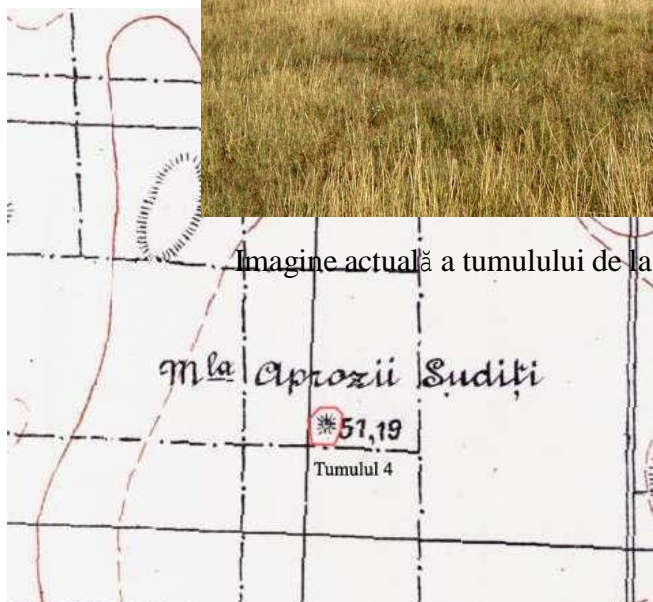 Imagine actuală a tumulului de la
Mla Aprozii Sudiți
51,19
Tumulul 4